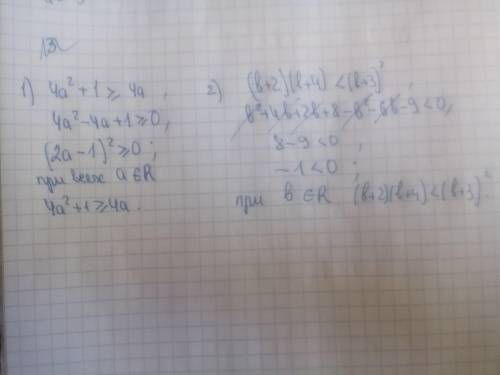 1) 4a² + 1 ⩾ 4a,
4a² - 4a + 1 ⩾ 0,
(2a - 1)² ⩾ 0;
при всех a ∈ R
4a² + 1 ⩾ 4a.
2) (b+2)(b+4) < (b+3)²,
b² + 4b + 2b + 8 - b² - 6b - 9 < 0,
8 - 9 < 0,
-1 < 0;
при b ∈ R (b+2)(b+4) < (b+3)².